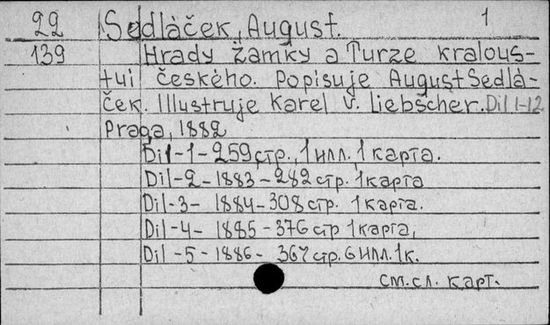 22 Sedláček, August. 1
139 Hrady Žamky a Turze kralous-
tui českého. Popisuje August Sedlá-
ček. Illustruje Karel v. Liebscher. Dil 1-12
Praga, 1882
Dil-1-259 стр., 1 илл. 1 карта.
Dil-2-1883-282 стр. 1 карта
Dil-3- 1884-308 стр. 1 карта.
Dil-4- 1885-376 стр 1 карта,
Dil-5-1886- 367 стр. 6 илл. 1к.
см.сл. карт.